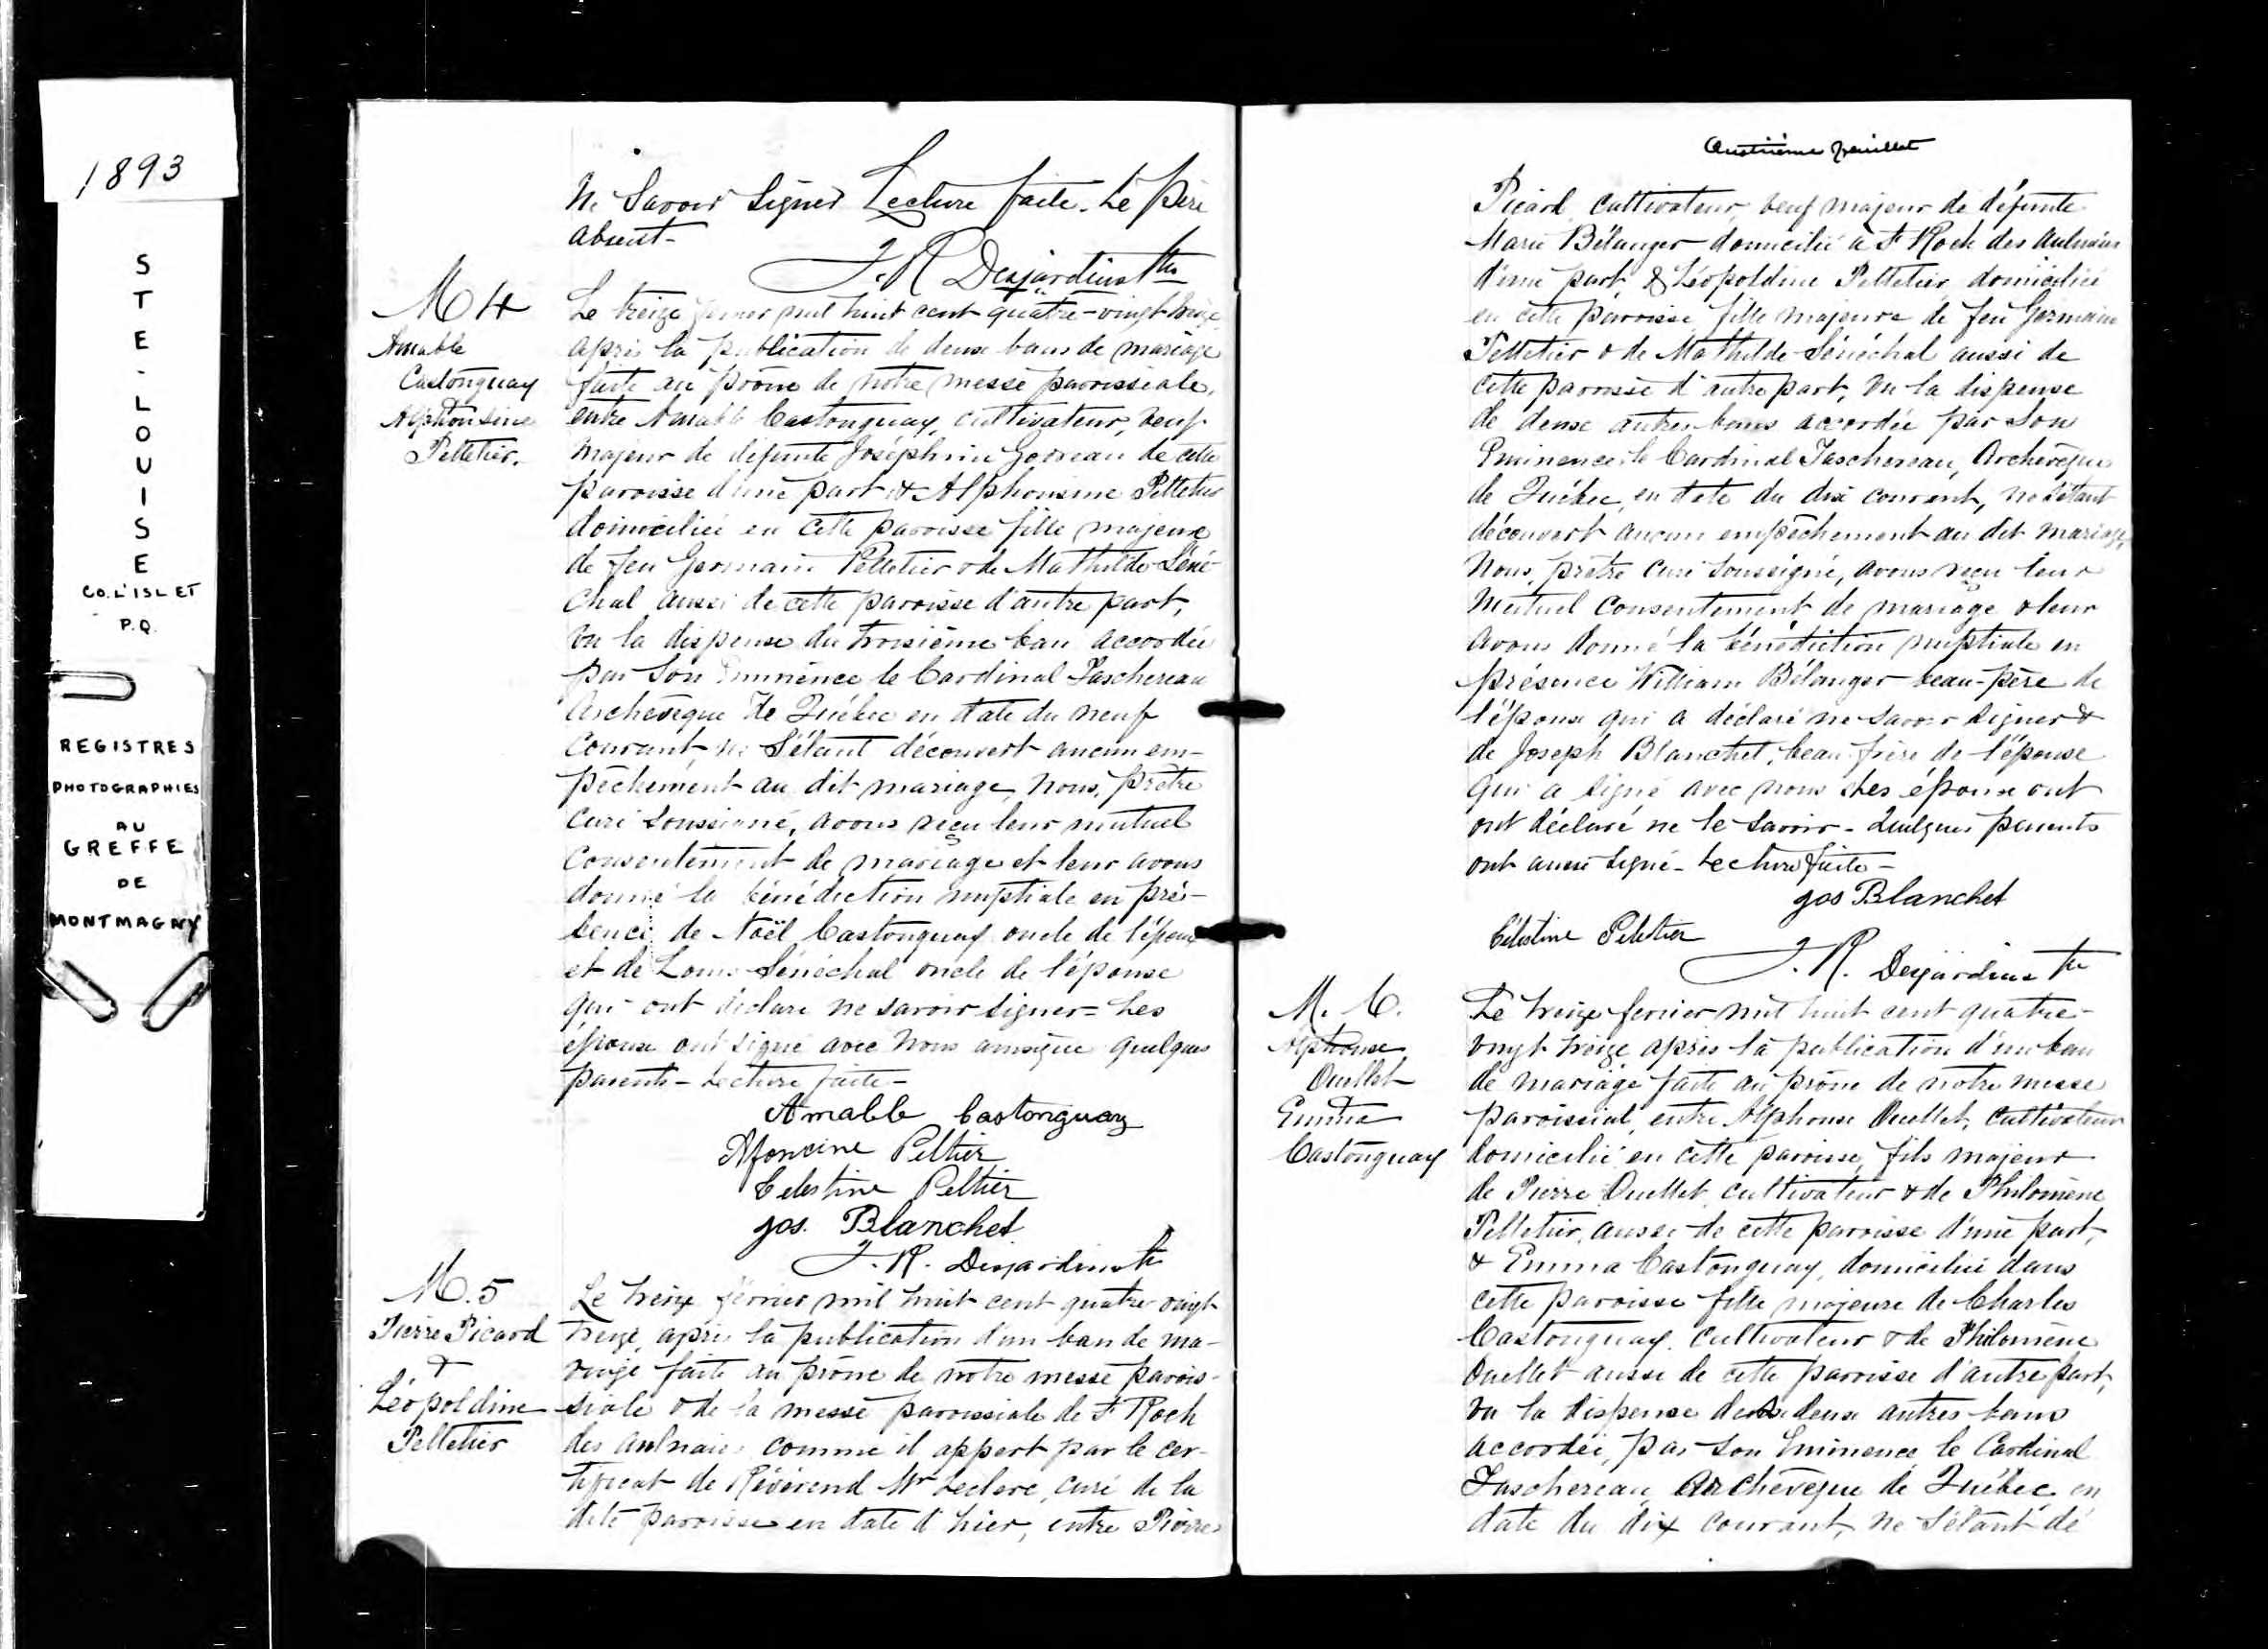 1893
STE-LOUISE
CO. L'ISLET
P.Q.
REGISTRES
PHOTOGRAPHIES
AU
GREFFE
DE
MONTMAGNY
ne Savoir Signer Lecture faite. Le père
absent-
J. R Desjardins Ptre
M 4
Amable
Castonguay
Alphonsine
Pelletier.
Le treize mil huit cent quatre-vingt-treize,
après la publication de deux bans de mariage
faite au prône de notre messe paroissiale,
entre Amable Castonguay, cultivateur, veuf
majeur de défunte Joséphine de cette
paroisse d'une part & Alphonsine Pelletier
domiciliée en cette paroisse fille majeure
de feu Germain Pelletier & de Mathilde Séné-
chal aussi de cette paroisse d'autre part,
vu la dispense du troisième ban accordée
par Son Eminence le Cardinal Taschereau
Archevêque de Québec en date du neuf
courant, ne S'étant découvert aucun em-
pêchement au dit mariage, Nous, prêtre
curé soussigné, avons reçu leur mutuel
consentement de mariage et leur avons
donné la bénédiction nuptiale en pré-
sence de Noël Castonguay oncle de l'époux
et de Louis Sénéchal oncle de l'épouse
qui ont déclaré ne savoir signer = Les
époux ont signé avec Nous ainsique quelques
parents - Lecture faite -
Amable Castonguay
Afoncine Peltier
Celestine Peltier
Jos. Blanchet
J. R. Desjardins Ptre
M. 5
Pierre Picard
&
Léopoldine
Pelletier
Le treize février mil huit cent quatre vingt
treize, après la publication d'un ban de ma-
riage faite au prône de notre messe parois-
siale & de la messe paroissiale de St Roch
des Aulnaies comme il appert par le cer-
tificat de Révérend Mr Leclerc, curé de la
dite paroisse en date d'hier, entre Pierre
Quatrième feuillet
Picard, cultivateur, veuf majeur de défunte
Marie Bélanger domicilié à St Roch des Aulnaies
d'une part & Léopoldine Pelletier, domiciliée
en cette paroisse, fille majeure de feu Germain
Pelletier & de Mathilde Sénéchal aussi de
cette paroisse d'autre part, vu la dispense
de deux autres bans accordée par Son
Eminence le Cardinal Taschereau, Archevêque
de Québec, en date du dix courant, ne S'étant
découvert aucun empêchement au dit mariage,
Nous, prêtre curé soussigné, avons reçu leur
mutuel consentement de mariage & leur
avons donné la bénédiction nuptiale en
présence William Bélanger beau-père de
l'époux qui a déclaré ne savoir signer &
de Joseph Blanchet, beau frère de l'épouse
qui a signé avec nous Les époux ont
ont déclaré ne le savoir - Quelques parents
ont aussi signé - Lecture faite -
Jos Blanchet
Célestine Peletier
J. R. Desjardins Ptre
M. 6.
Alphonse
Ouellet
Emma
Castonguay
Le treize fevrier mil huit cent quatre-
vingt treize après la publication d'un ban
de mariage faite au prône de notre messe
paroissial, entre Alphonse Ouellet, cultivateur
domicilié en cette paroisse, fils majeur
de Pierre Ouellet, cultivateur & de Philomène
Pelletier, aussi de cette paroisse d'une part,
& Emma Castonguay, domiciliée dans
cette paroisse fille majeure de Charles
Castonguay, cultivateur & de Philomène
Ouellet aussi de cette paroisse d'autre part,
vu la dispense deux autres bans
accordée, par Son Eminence le Cardinal
Taschereau, Archevêque de Québec, en
date du dix courant, ne S'étant dé